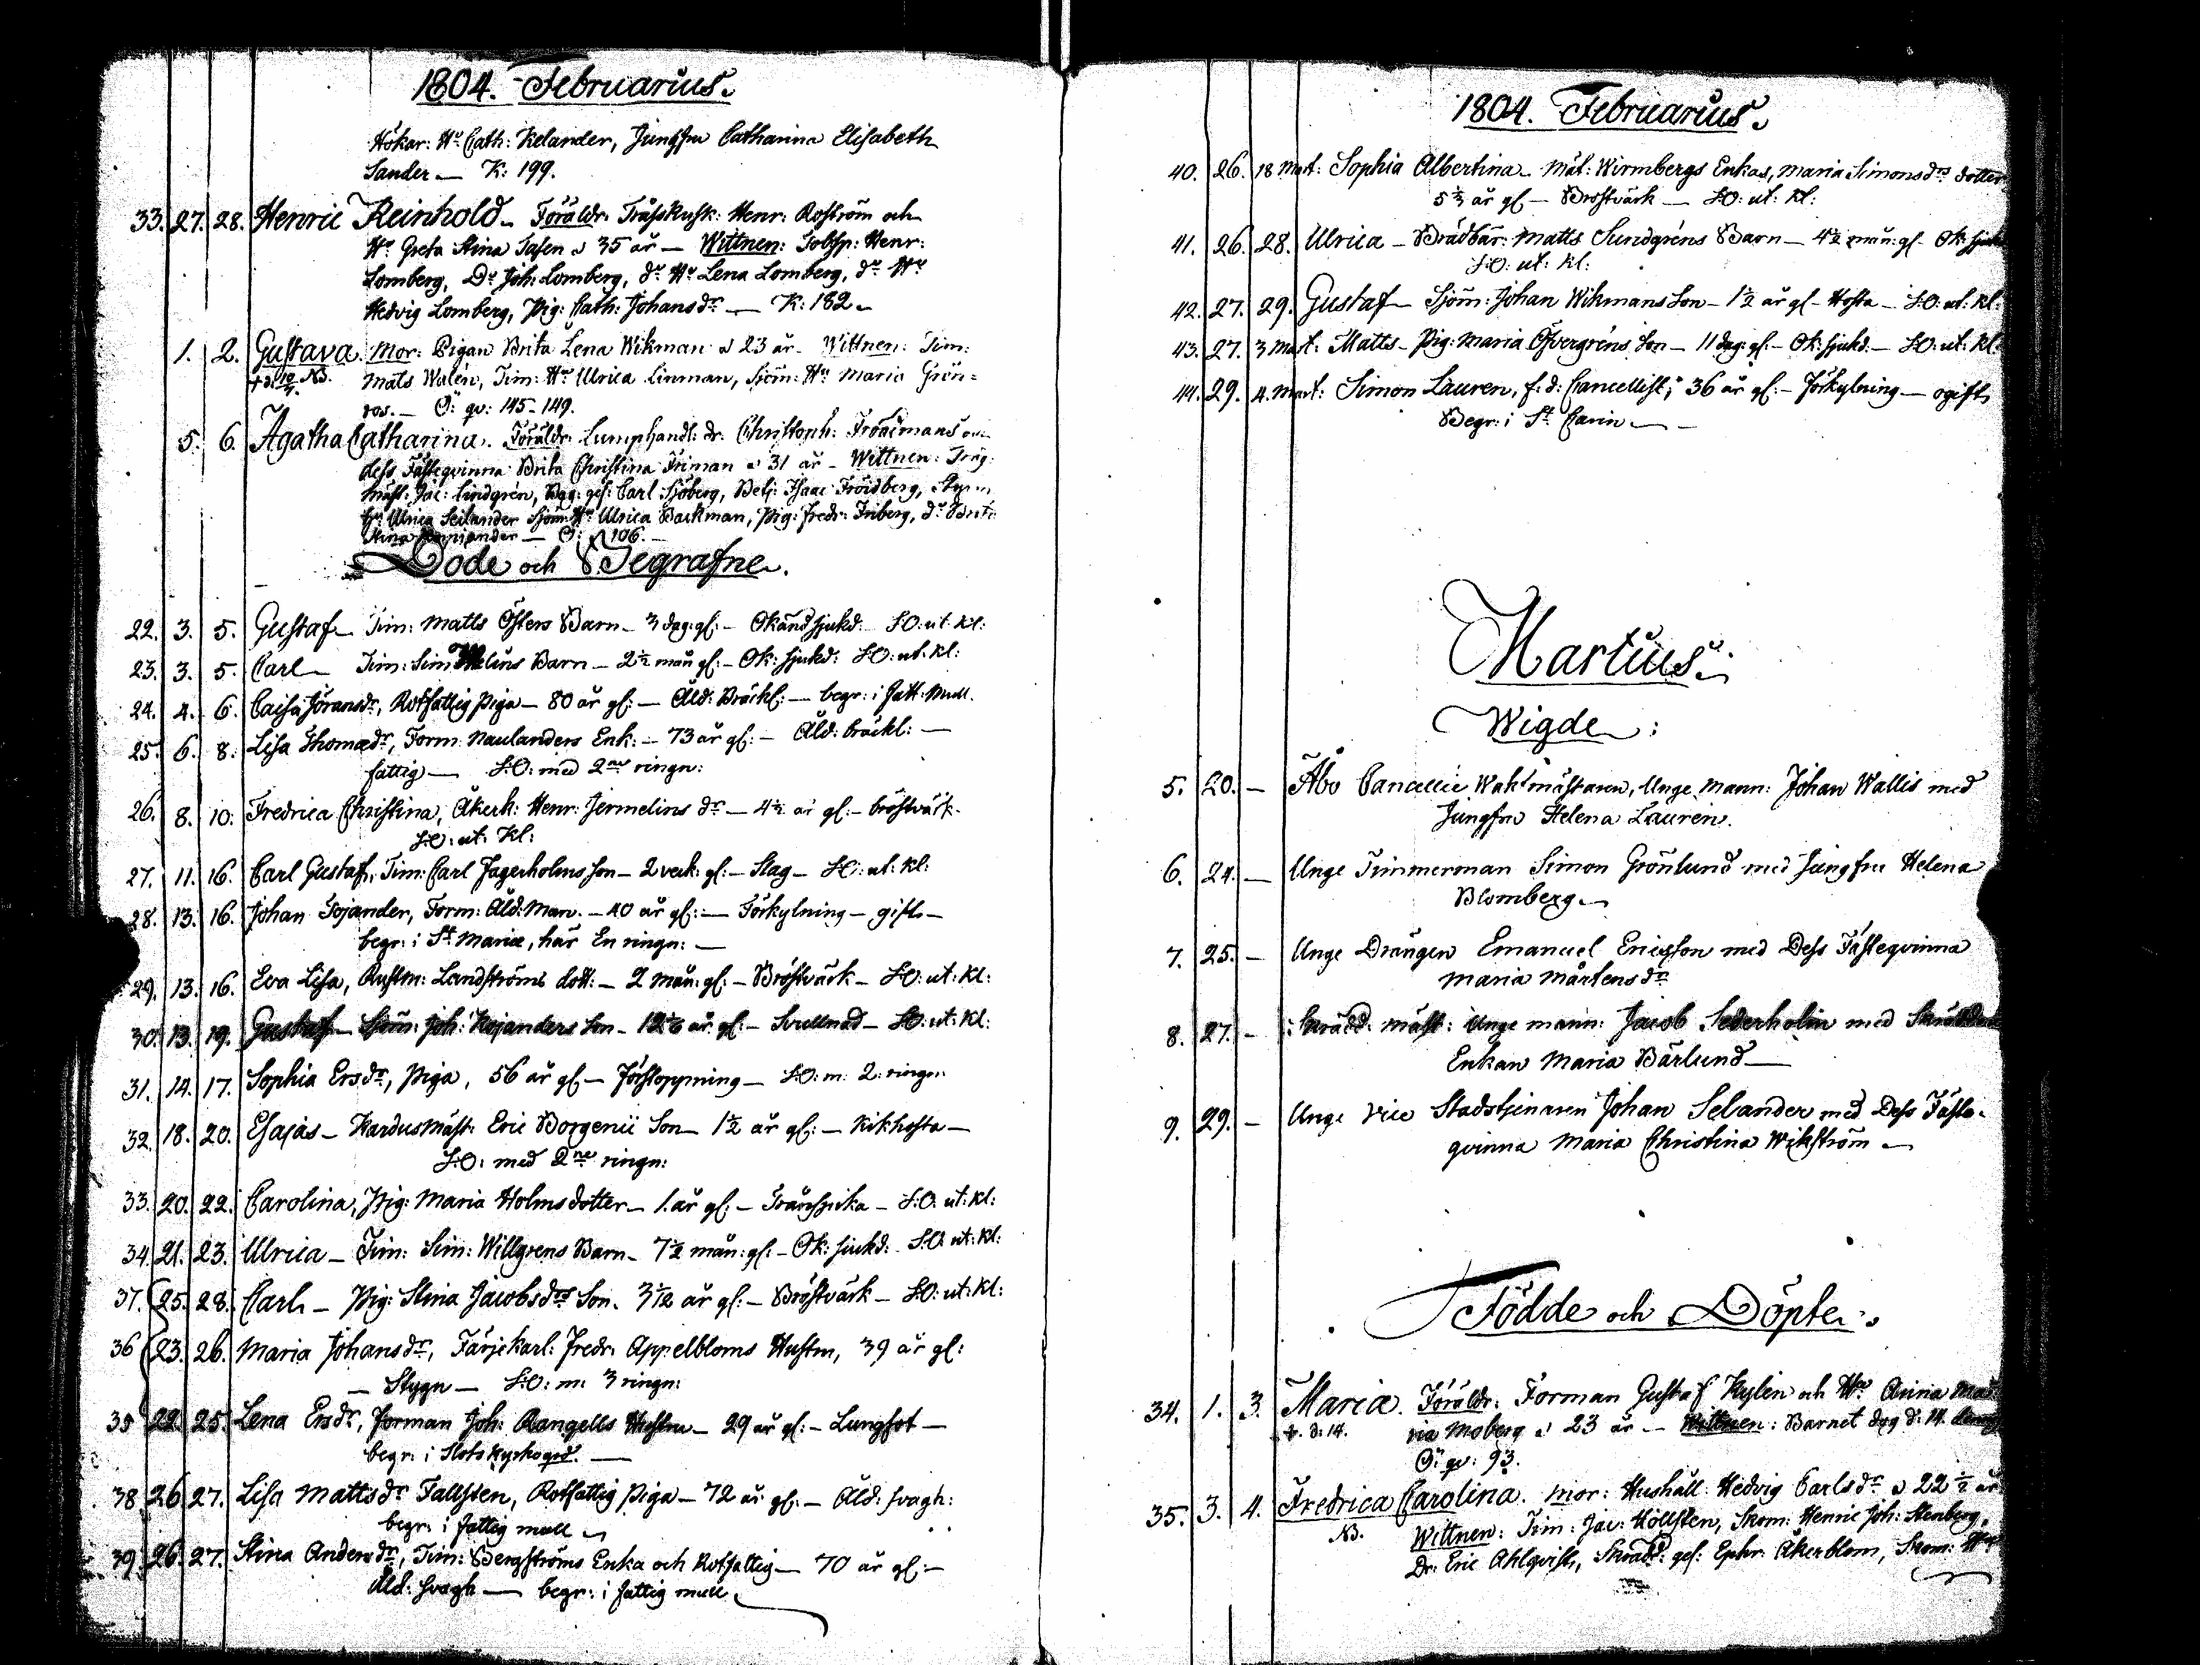 1804. Februarius.
Hökar: Hu Cath: Kelander, Jungfru Catharina Elisabeth
Sander — K: 199.
33. 27. 28. Henric Reinhold — Föräldr: Henr: Roström och
Hu Greta Stina 35 år — Wittnen: Henr:
Lomberg, Dr Joh: Lomberg, dr Hu Lena Lomberg, dr Hu
Hedvig Lomberg, Pig: Cath: Johansdr — K: 182 —
1. 2. Gustava. Mor: Pigan Brita Lena Wikman 23 år — Wittnen: Tim:
NB. Mats Walén, Tim: Hu Ulrica Linman, Sjöm: Hu Maria Grön=
ros. — Ö: qv: 145–149.
5. 6. Agatha Catharina. Föräldr: Lumphandl: dr: Christoph:
dess Fästeqvinna Brita Christina Friman 31 år — Wittnen: Träg:
mäst: Jac: Lindgrén, Carl Sjöberg, Isaac
Ulrica Sjöm: Hu Ulrica Backman, Pig: Fredr: Friberg, dr
Stina — Ö: 106. —
Döde och Begrafne.
22. 3. 5. Gustaf — Tim: Matts Östers Barn — 3 dag: gl: — Okänd sjukd: S:O: ut: Kl:
23. 3. 5. Carl — Tim: Sim: Barn — 2½ mån gl: — Ok: sjukd: S:O: ut: Kl:
24. 4. 6. Caisa Jöransdr, Rotfattig Piga — 80 år gl: — Åld: Bräckl: — begr: i fatt: mull.
25. 6. 8. Lisa Thomædr, Form: Naulanders Enk: — 73 år gl: — Åld: bräckl: —
fattig — S:O: med 2ne ringn:
26. 8. 10. Fredrica Christina, Åkerk: Henr: Jermelins dr — 4½ år gl: — bröstvärk —
S:O: ut: Kl:
27. 11. 16. Carl Gustaf, Tim: Carl Jagerholms Son — 2 veck: gl: — Slag — S:O: ut: Kl:
28. 13. 16. Johan Tojander, Form: Åld: Man. — 40 år gl: — Förkylning — gift —
begr: i St Mariæ, här En ringn: —
29. 13. 16. Eva Lisa, Landströms dott: — 2 mån: gl: — Bröstvärk — S:O: ut: Kl:
30. 13. 19. Gustaf — Sjöm: Joh: Kojanders Son — år gl: — Svullnad — S:O: ut: Kl:
31. 14. 17. Sophia Ersdr, Piga, 56 år gl — Förstoppning — S:O: m: 2: ringn:
32. 18. 20. Esajas — Kardusmäst: Eric Borgenii Son — 1½ år gl: — Kikhosta —
S:O: med 2ne ringn:
33. 20. 22. Carolina, Pig: Maria Holms dotter — 1. år gl: — — S:O: ut: Kl:
34. 21. 23. Ulrica — Tim: Sim: Willgrens Barn — 7½ mån: gl: — Ok: sjukd: S:O: ut: Kl:
37. 25. 28. Carl — Pig: Stina Jacobsdrs Son. 3½ år gl: — Bröstvärk — S:O: ut: Kl:
36 23. 26. Maria Johansdr, Färjekarl: Fredr: Appelbloms Hustru, 39 år gl:
— Stygn — S:O: m: 3 ringn:
35 22. 25. Lena Ersdr, Forman Joh: Rangells Hustru — 29 år gl: — Lungsot —
begr: i Slots Kyrkogrd. —
38 26 27. Lisa Mattsdr Tallsten, Rotfattig Piga — 72 år gl: — Åld: svagh:
begr: i fattig mull
39. 26. 27. Stina Andersdr, Tim: Bergströms Enka och Rotfattig — 70 år gl: —
Åld: svagh — begr: i fattig mull
1804. Februarius.
40. 26. 18 Mart: Sophia Albertina — Mät: Wirmbergs Enkas, Maria Simonsdrs dotter
5½ år gl — Bröstvärk — S:O: ut: Kl:
41. 26. 28. Ulrica — Brädbär: Matts Sundgréns Barn — 4½ mån: gl — Ok: sjukd
S:O: ut: Kl:
42. 27. 29. Gustaf — Sjöm: Johan Wikmans Son — 1½ år gl — Hosta — S:O: ut: Kl:
43. 27. 3 Mart: Matts — Pig: Maria Öfvergréns Son — 11 dag: gl — Ok: sjukd: — S:O: ut: Kl:
44. 29. 4. Mart: Simon Lauren, f: d: Cancellist, 36 år gl: — Förkylning — ogift,
Begr: i St Carin —
Martius.
Wigde:
5. 20. — Åbo Cancellie Waktmästaren, Unge Mann: Johan Wallis med
Jungfru Helena Laurén.
6. 24. — Unge Timmerman Simon Grönlund med Jungfru Helena
Blomberg —
7. 25. — Unge Drängen Emanuel Ericsson med Dess Fästeqvinna
Maria Mårtensdr
8. 27. — Skrädd: mäst: Unge mann: Jacob Sederholm med
Enkan Maria Bärlund —
9. 29. — Unge Vice Stadstjenaren Johan Selander med Dess Fäste=
qvinna Maria Christina Wikström —
Födde och Döpte.
34. 1. 3. Maria. Föräldr: Forman Gustaf Kylén och Hu Anna Ma
†. d: 14. ria Moberg 23 år — Wittnen: Barnet dog d: 14.
Ö: qv: 93.
35. 3. 4. Fredrica Carolina. Mor: Hushåll: Hedvig Carlsdr 22½ år
NB. Wittnen: Tim: Jac: Höllsten, Skom: Henric Joh: Stenberg,
Dr: Eric Ahlqvist, Skrädd: ges: Ephr: Åkerblom, Skom: Hu